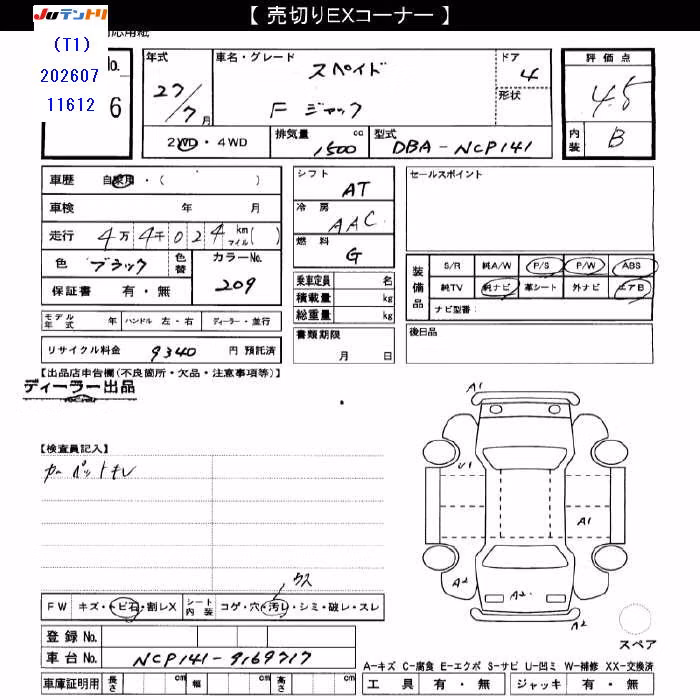 【 売切りEXコーナー 】
JUテントリ
(T1)
202607
11612
6
No.
年式
27/7月
車名・グレード
スペイド
F ジャック
ドア
4
形状
評価点
4.5
内装
B
2WD・4WD
排気量
1500 cc
型式
DBA-NCP141
車歴 自家用・( )
車検 年 月
走行 4万4千024 km マイル( )
色 ブラック
色替
カラーNo.
209
保証書 有・無
モデル年式 年
ハンドル 左・右
ディーラー・並行
リサイクル料金 9340 円 預託済
シフト
AT
冷房
AAC
燃料
G
乗車定員 名
積載量 kg
総重量 kg
書類期限
月 日
セールスポイント
装備品
S/R 純A/W P/S P/W ABS
純TV 純ナビ 革シート 外ナビ エアB
ナビ型番:
後日品
【出品店申告欄(不良箇所・欠品・注意事項等)】
ディーラー出品
【検査員記入】
カーペットキレ
ウス
FW キズ・トビ石・割レX
シート内装 コゲ・穴・汚レ・シミ・破レ・スレ
登録No.
車台No. NCP141-9169717
車庫証明用 長さ cm 幅 cm 高さ cm
A1
U1
A1
A2
A2
A2
スペア
A-キズ C-腐食 E-エクボ S-サビ U-凹ミ W-補修 XX-交換済
工具 有・無 ジャッキ 有・無